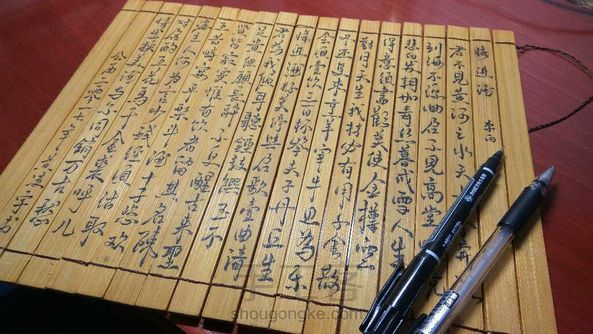 将进酒 李白
君不见黄河之水天
到海不复回君不见高堂
悲白发朝如青丝暮成雪人生
得意须尽欢莫使金樽空
对月天生我材必有用千金散
尽还复来烹羊宰牛且为乐
会须一饮三百杯岑夫子丹丘生
将进酒杯莫停与君歌一曲请
君为我倾耳听钟鼓馔玉不
足贵但愿长醉不复醒古来圣
贤皆寂寞惟有饮者留其名陈
王昔时宴平乐斗酒十千恣欢
主人何为言少钱径须沽取
对君酌五花马千金裘呼儿
将出换美酒与尔同销万古愁
公元二零一七年
手书
shougongke.com